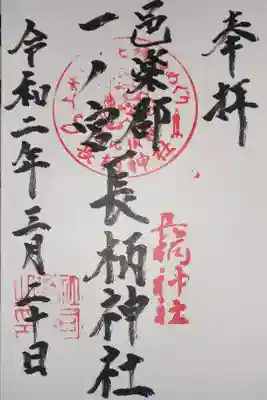 奉拝
邑楽郡
一ノ宮長柄神社
長柄神社
令和二年三月二十日